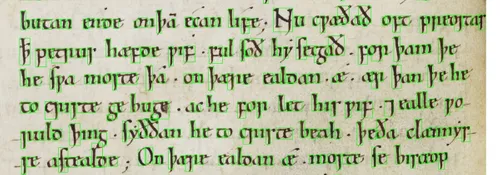 butan ende on þā ecan life; Nu cƿæðað oft preostas
ꝥ petrus hæfde ƿif . ful soð hy secgað . for þam þe
he sƿa moste þā . on þære ealdan .æ. ær þan þe he
to criste ge buge . ac he for let his ƿif . ⁊ ealle ƿo-
ruld þing . syððan he to criste beah . þe ða clænnys-
se astealde ; On þære ealdan .æ. moste se bisceop